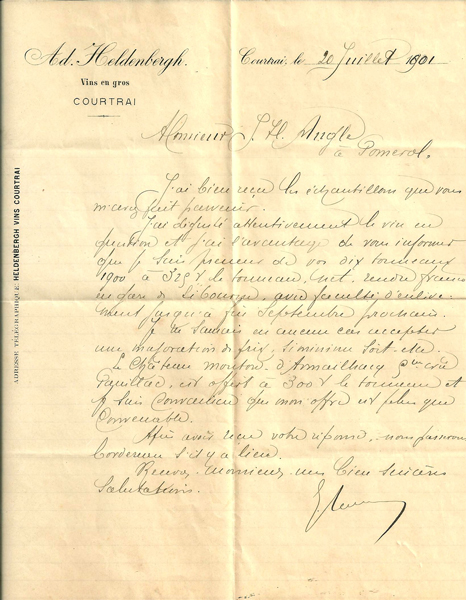 Ad. Heldenbergh.
Vins en gros
COURTRAI
Courtrai, le 20 Juillet 1901
Monsieur J. H. Angle
à Pomerol.
J'ai bien reçu les échantillons que vous
m'avez fait parvenir.
J'ai dégusté attentivement le vin en
question et j'ai l'avantage de vous informer
que je suis preneur de vos dix tonneaux
1900 à 325 f le tonneau, net, rendu franco
en gare de Libourne, avec faculté d'enlève-
ment jusqu'à fin Septembre prochain.
Je ne saurais en aucun cas accepter
une majoration de prix, si minime soit-elle.
Le Château Mouton d'Armailhacq 5me crû
Pauillac, est offert à 300 f le tonneau et
je suis convaincu que mon offre est plus que
convenable.
Après avoir reçu votre réponse, nous passerons
bordereau s'il y a lieu.
Recevez, Monsieur, mes bien sincères
salutations.
ADRESSE TÉLÉGRAPHIQUE: HELDENBERGH VINS COURTRAI